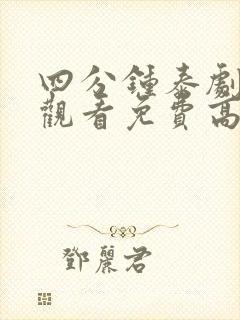 四分鍾泰劇
觀看免費高
鄧麗君